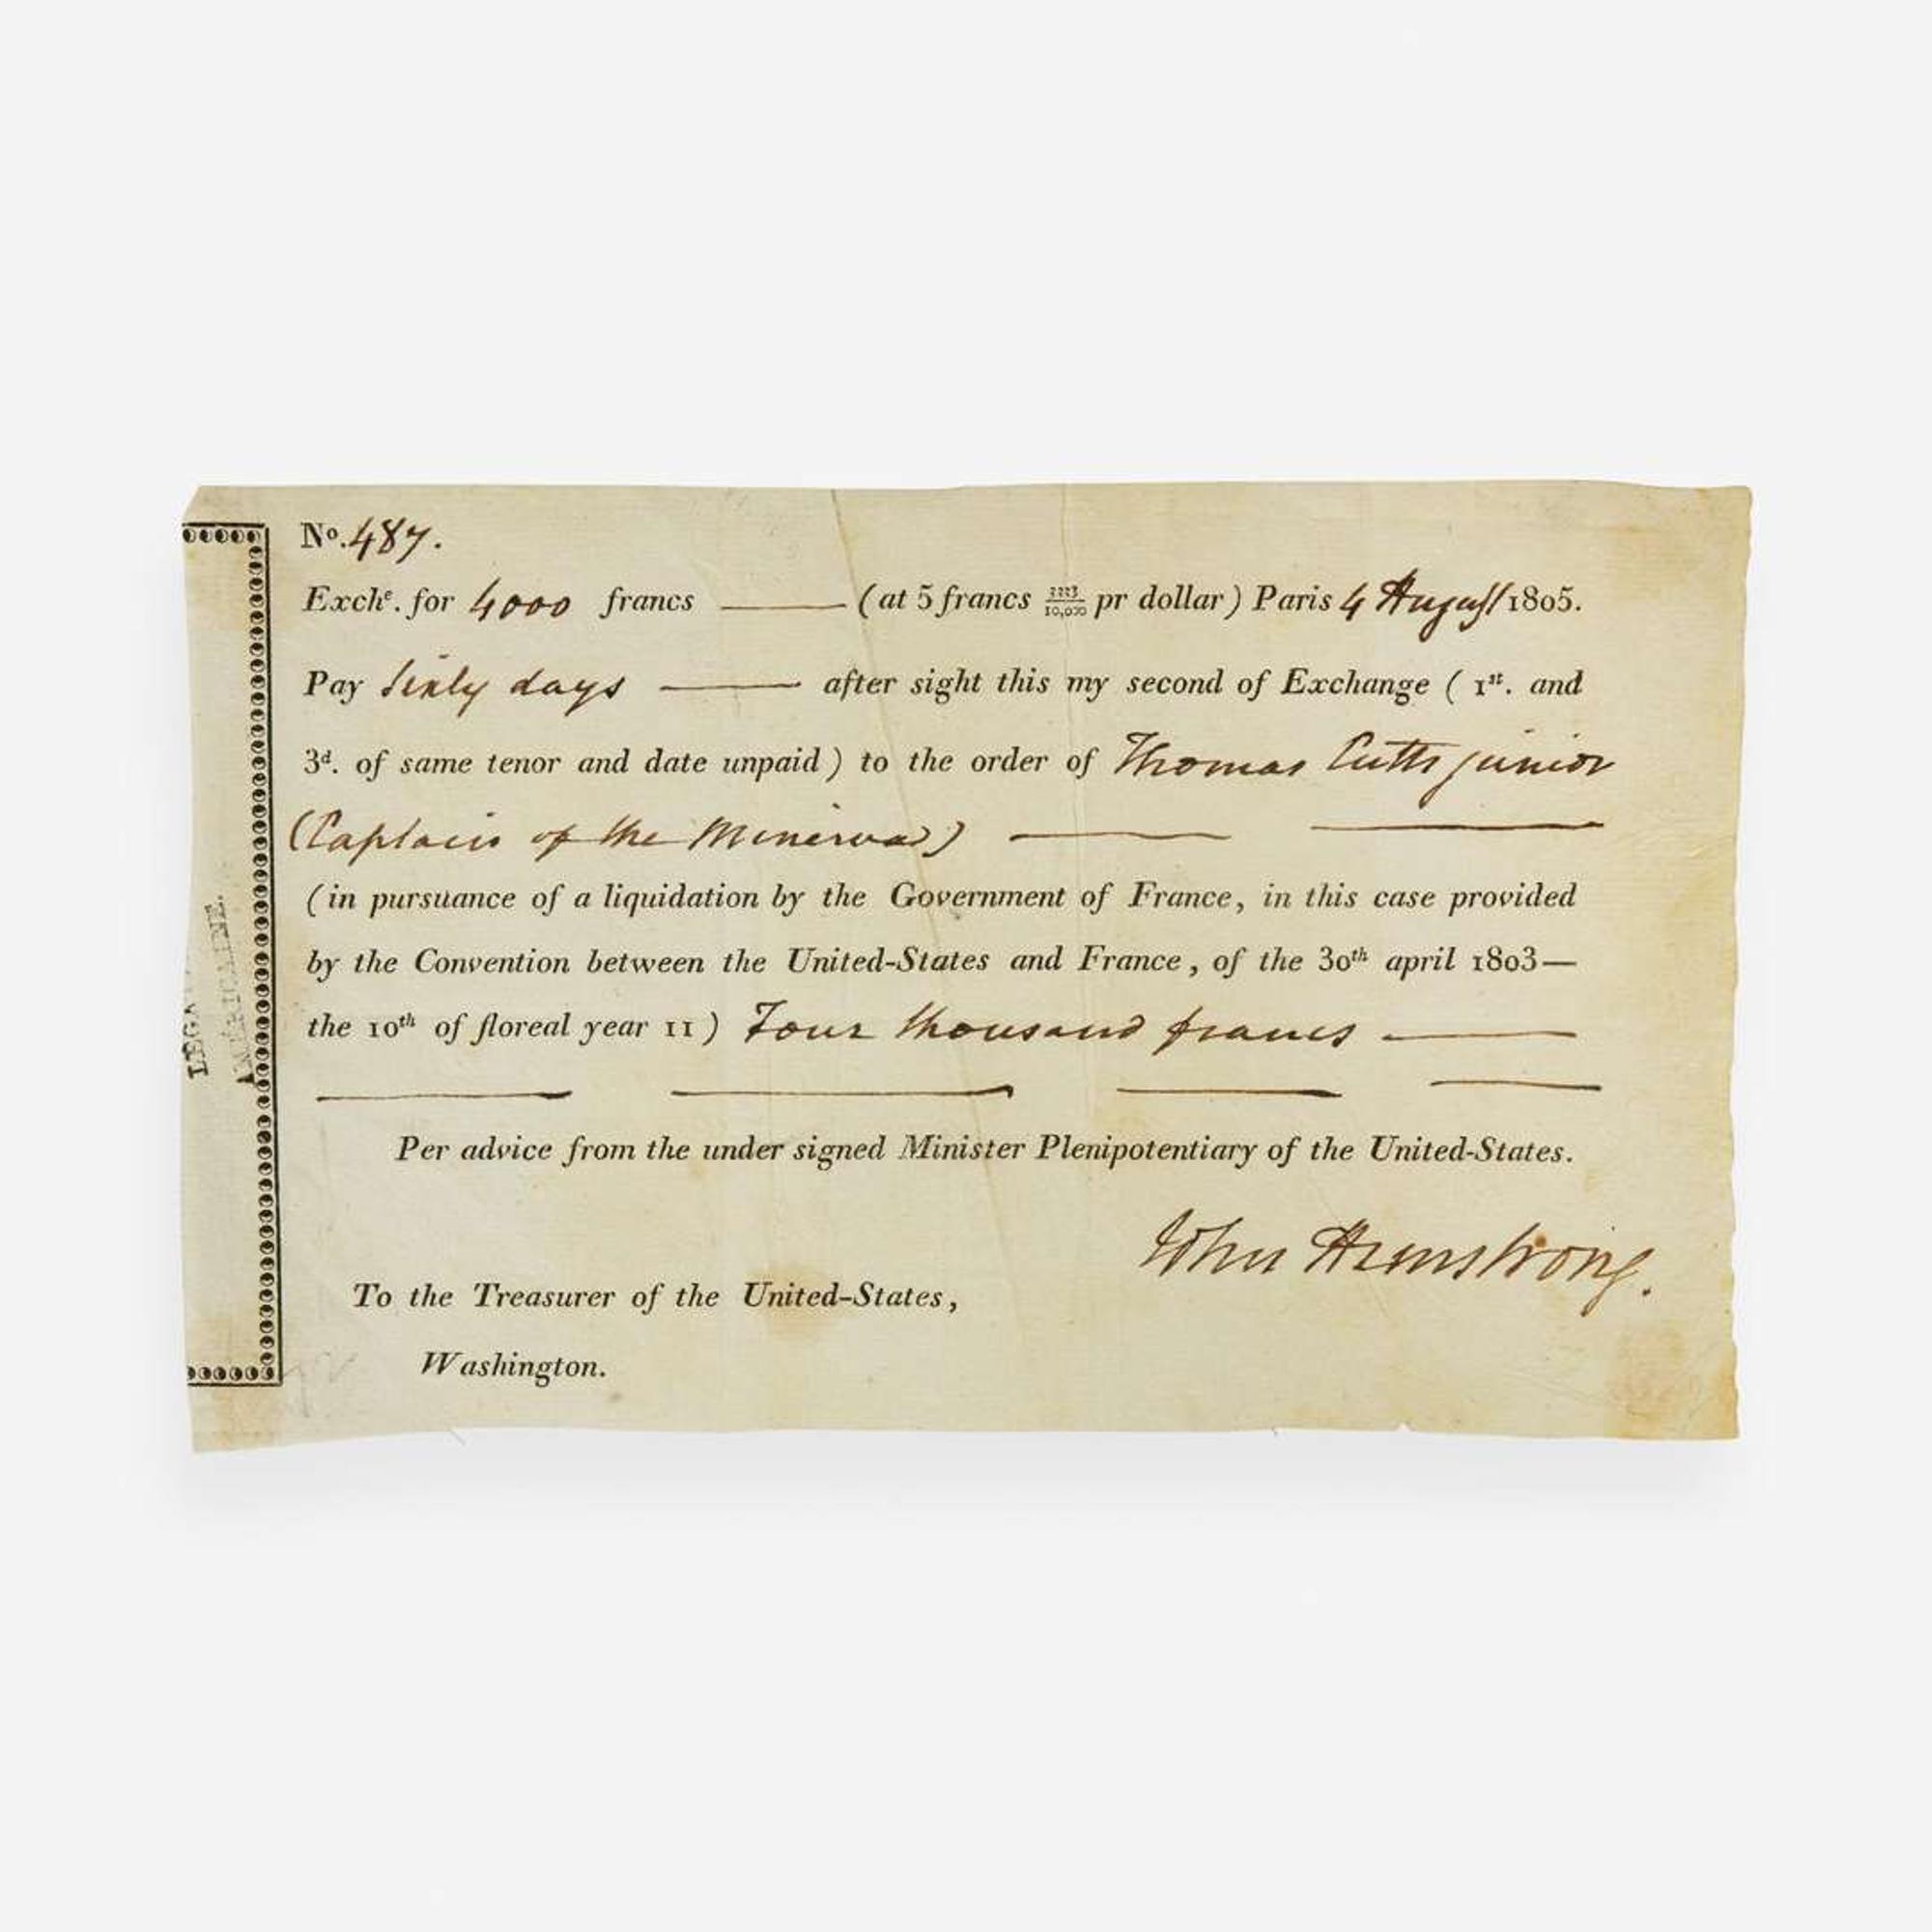 No. 487.
Exche. for 4000 francs (at 5 francs 3333/10,000 pr dollar) Paris 4 August 1805.
Pay Sixty days after sight this my second of Exchange ( 1st. and
3d. of same tenor and date unpaid) to the order of Thomas Cutts junior
(Captain of the Minerva)
(in pursuance of a liquidation by the Government of France, in this case provided
by the Convention between the United-States and France, of the 30th april 1803—
the 10th of floreal year 11) Four thousand francs
Per advice from the under signed Minister Plenipotentiary of the United-States.
John Armstrong.
To the Treasurer of the United-States,
Washington.
LEGA
AMÉRICAINE.